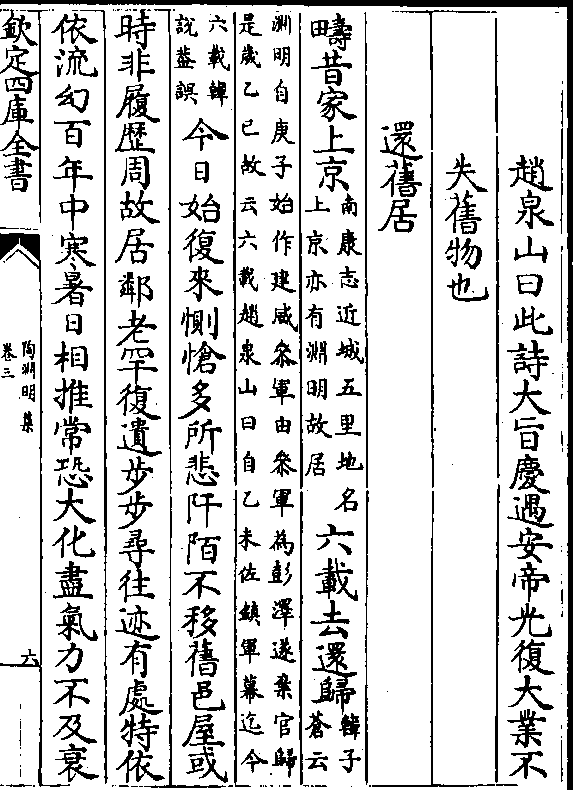 趙泉山曰此詩大旨慶遇安帝光復大業不
失舊物也
還舊居
疇昔家上京
南康志近城五里地名
上京亦有淵明故居
六載去還歸
韓子
蒼云
淵明自庚子始作建威叅軍由叅軍為彭澤遂棄官歸
是歲乙巳故云六載趙泉山曰自乙未佐鎮軍幕迄今
六載韓
說葢誤
今日始復來惻愴多所悲阡陌不移舊邑屋或
時非履歷周故居鄰老罕復遺步步尋往迹有處特依
依流幻百年中寒暑日相推常恐大化盡氣力不及衰
欽定四庫全書
陶淵明集
卷三
六